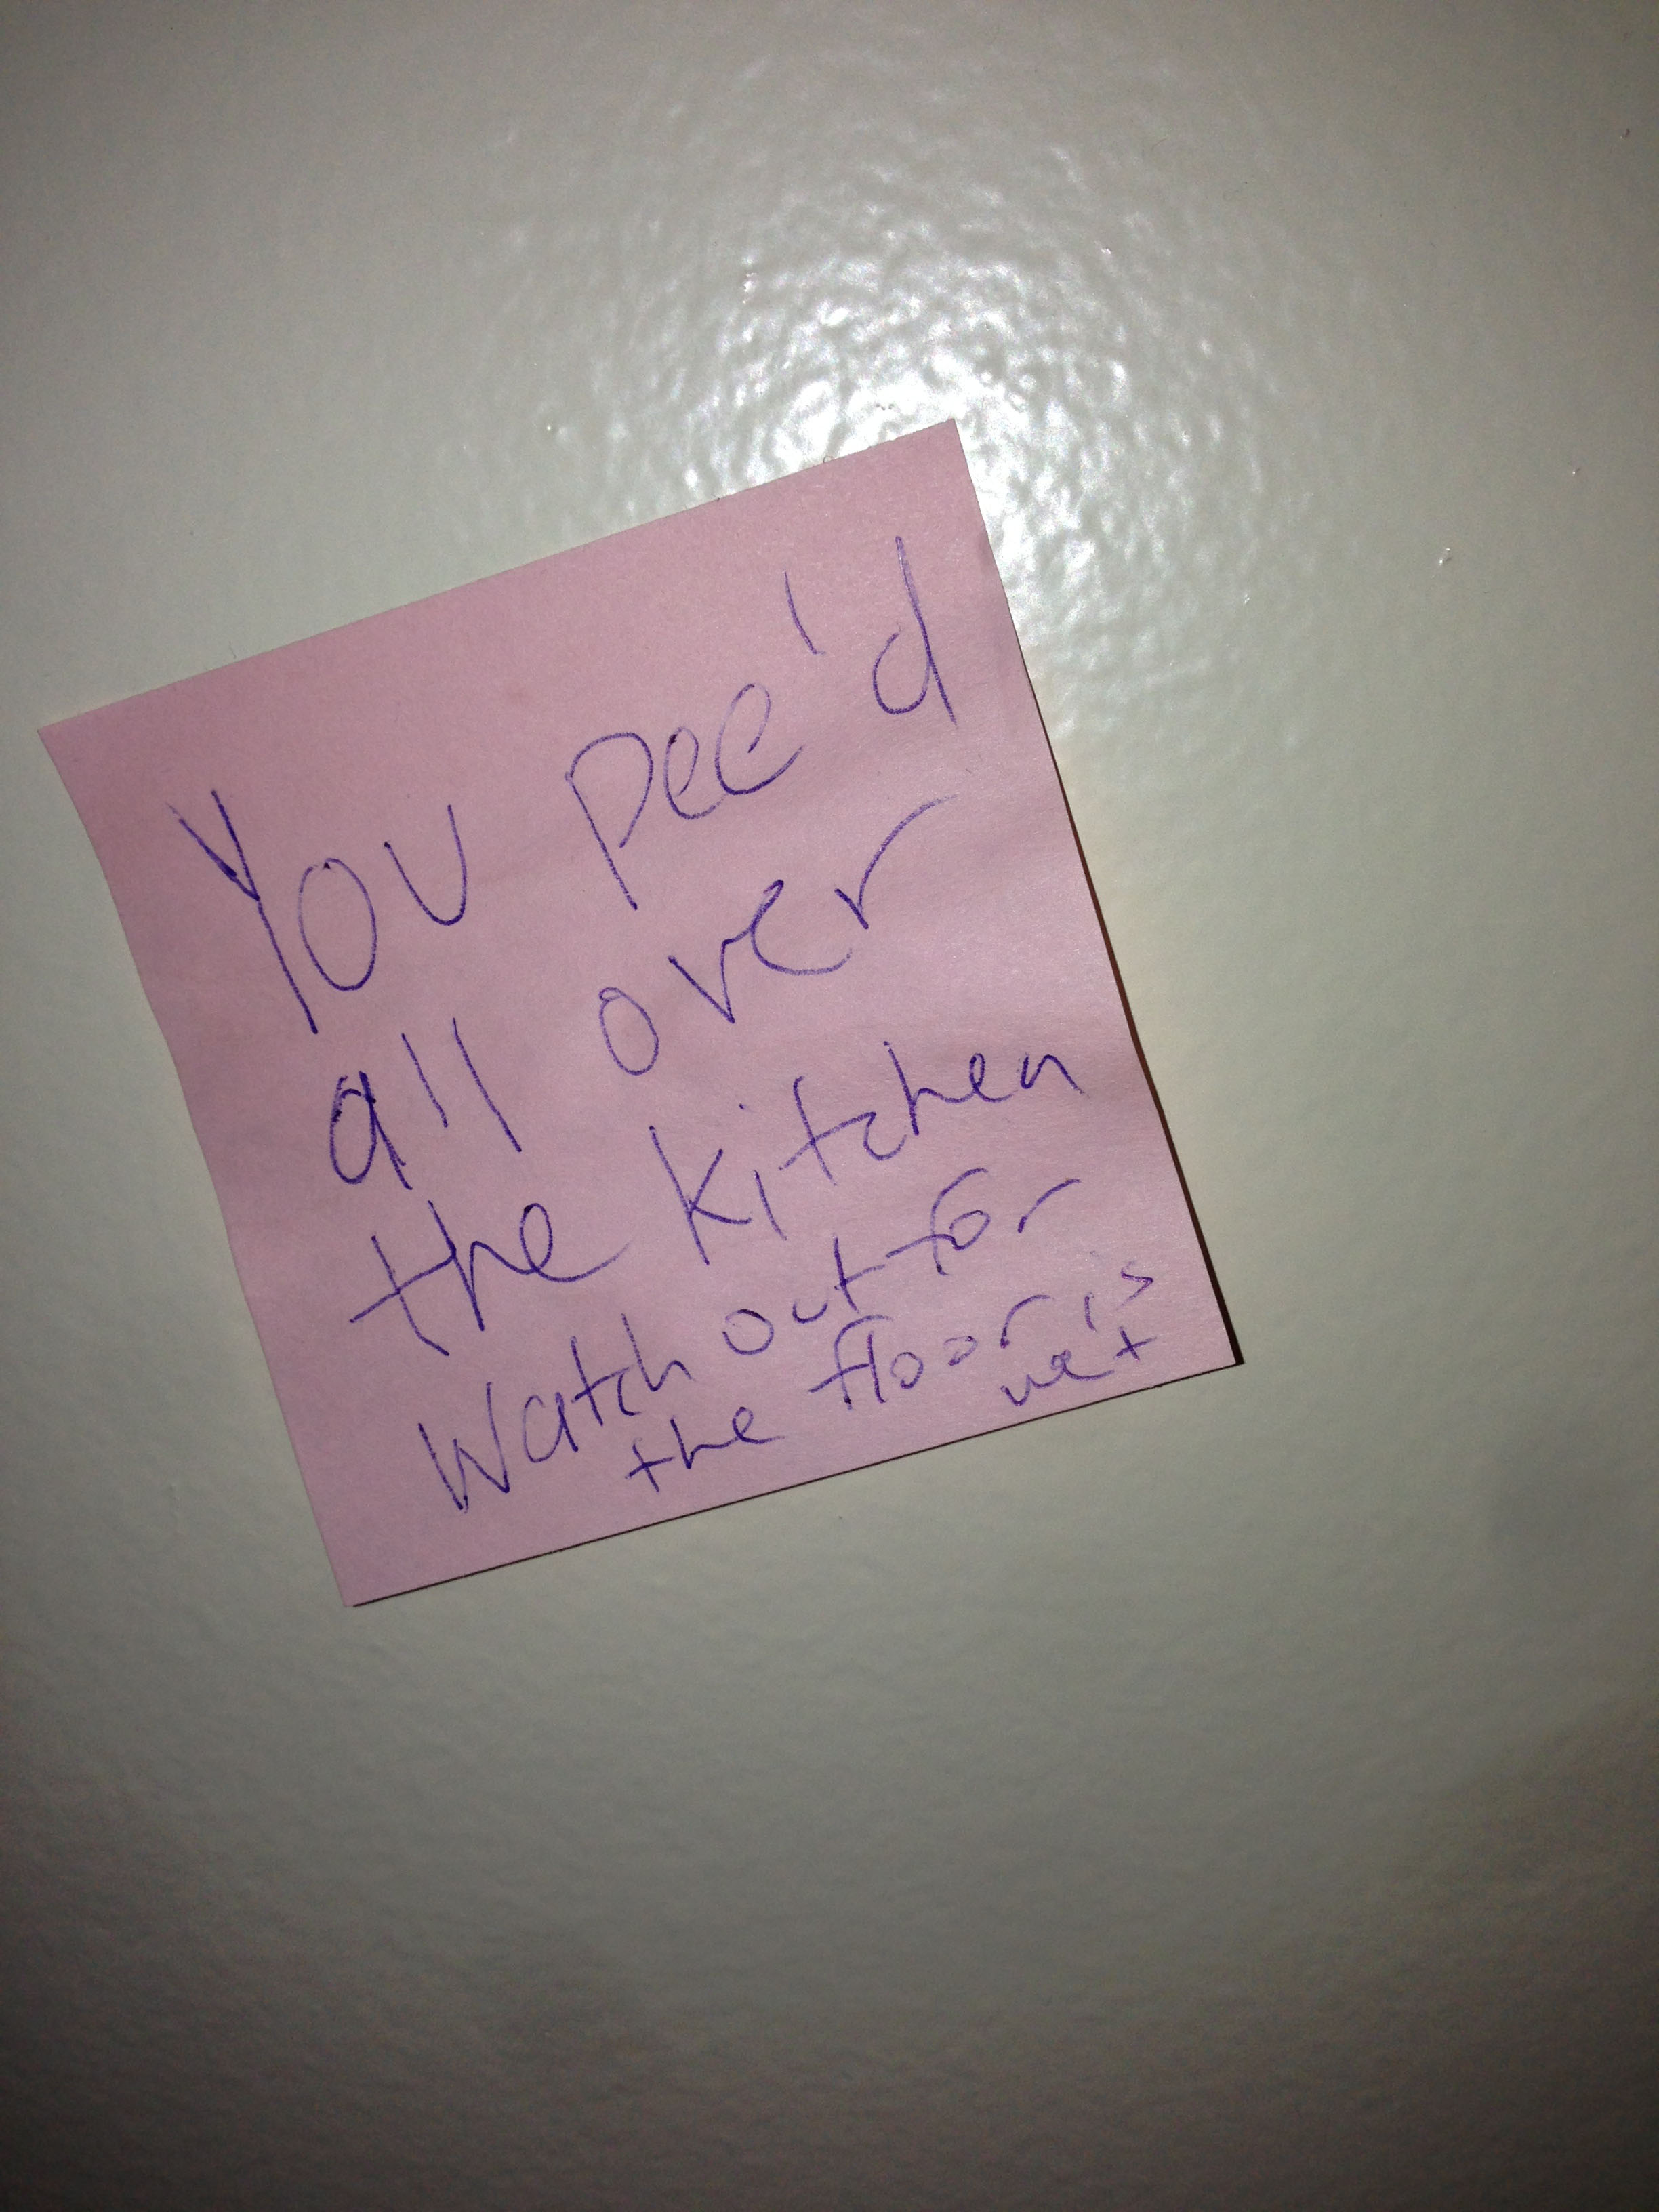 You pee'd
all over
the kitchen
Watch out for
the floor is
wet